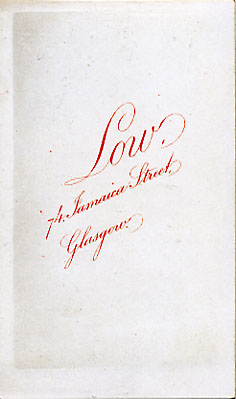 Low.
74, Jamaica Street,
Glasgow.